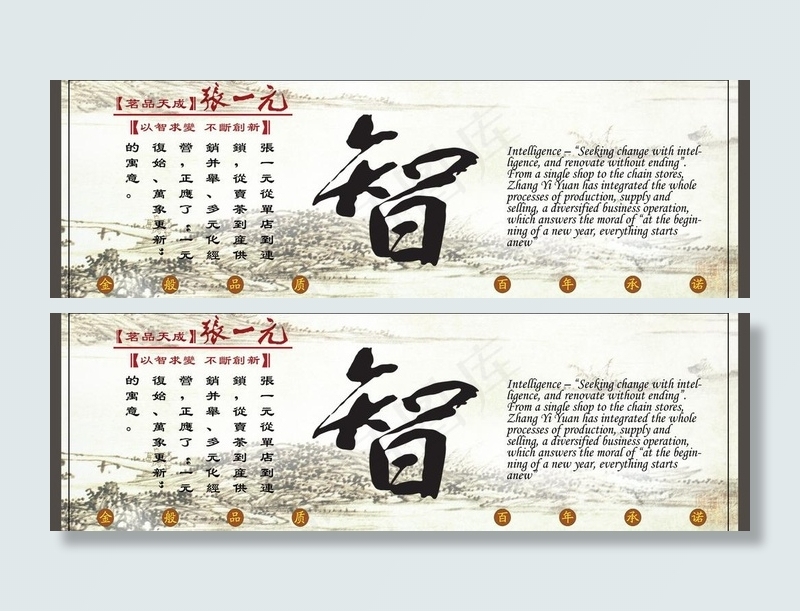 【茗品天成】張一元
【以智求變 不斷創新】
張一元從單店到連
鎖，從賣茶到産供
銷并舉、多元化經
營，正應了“一元
復始、萬象更新”
的寓意。
智
Intelligence – “Seeking change with intel-
ligence, and renovate without ending”.
From a single shop to the chain stores,
Zhang Yi Yuan has integrated the whole
processes of production, supply and
selling, a diversified business operation,
which answers the moral of “at the begin-
ning of a new year, everything starts
anew”
金 般 品 质 百 年 承 诺
【茗品天成】張一元
【以智求變 不斷創新】
張一元從單店到連
鎖，從賣茶到産供
銷并舉、多元化經
營，正應了“一元
復始、萬象更新”
的寓意。
智
Intelligence – “Seeking change with intel-
ligence, and renovate without ending”.
From a single shop to the chain stores,
Zhang Yi Yuan has integrated the whole
processes of production, supply and
selling, a diversified business operation,
which answers the moral of “at the begin-
ning of a new year, everything starts
anew”
金 般 品 质 百 年 承 诺